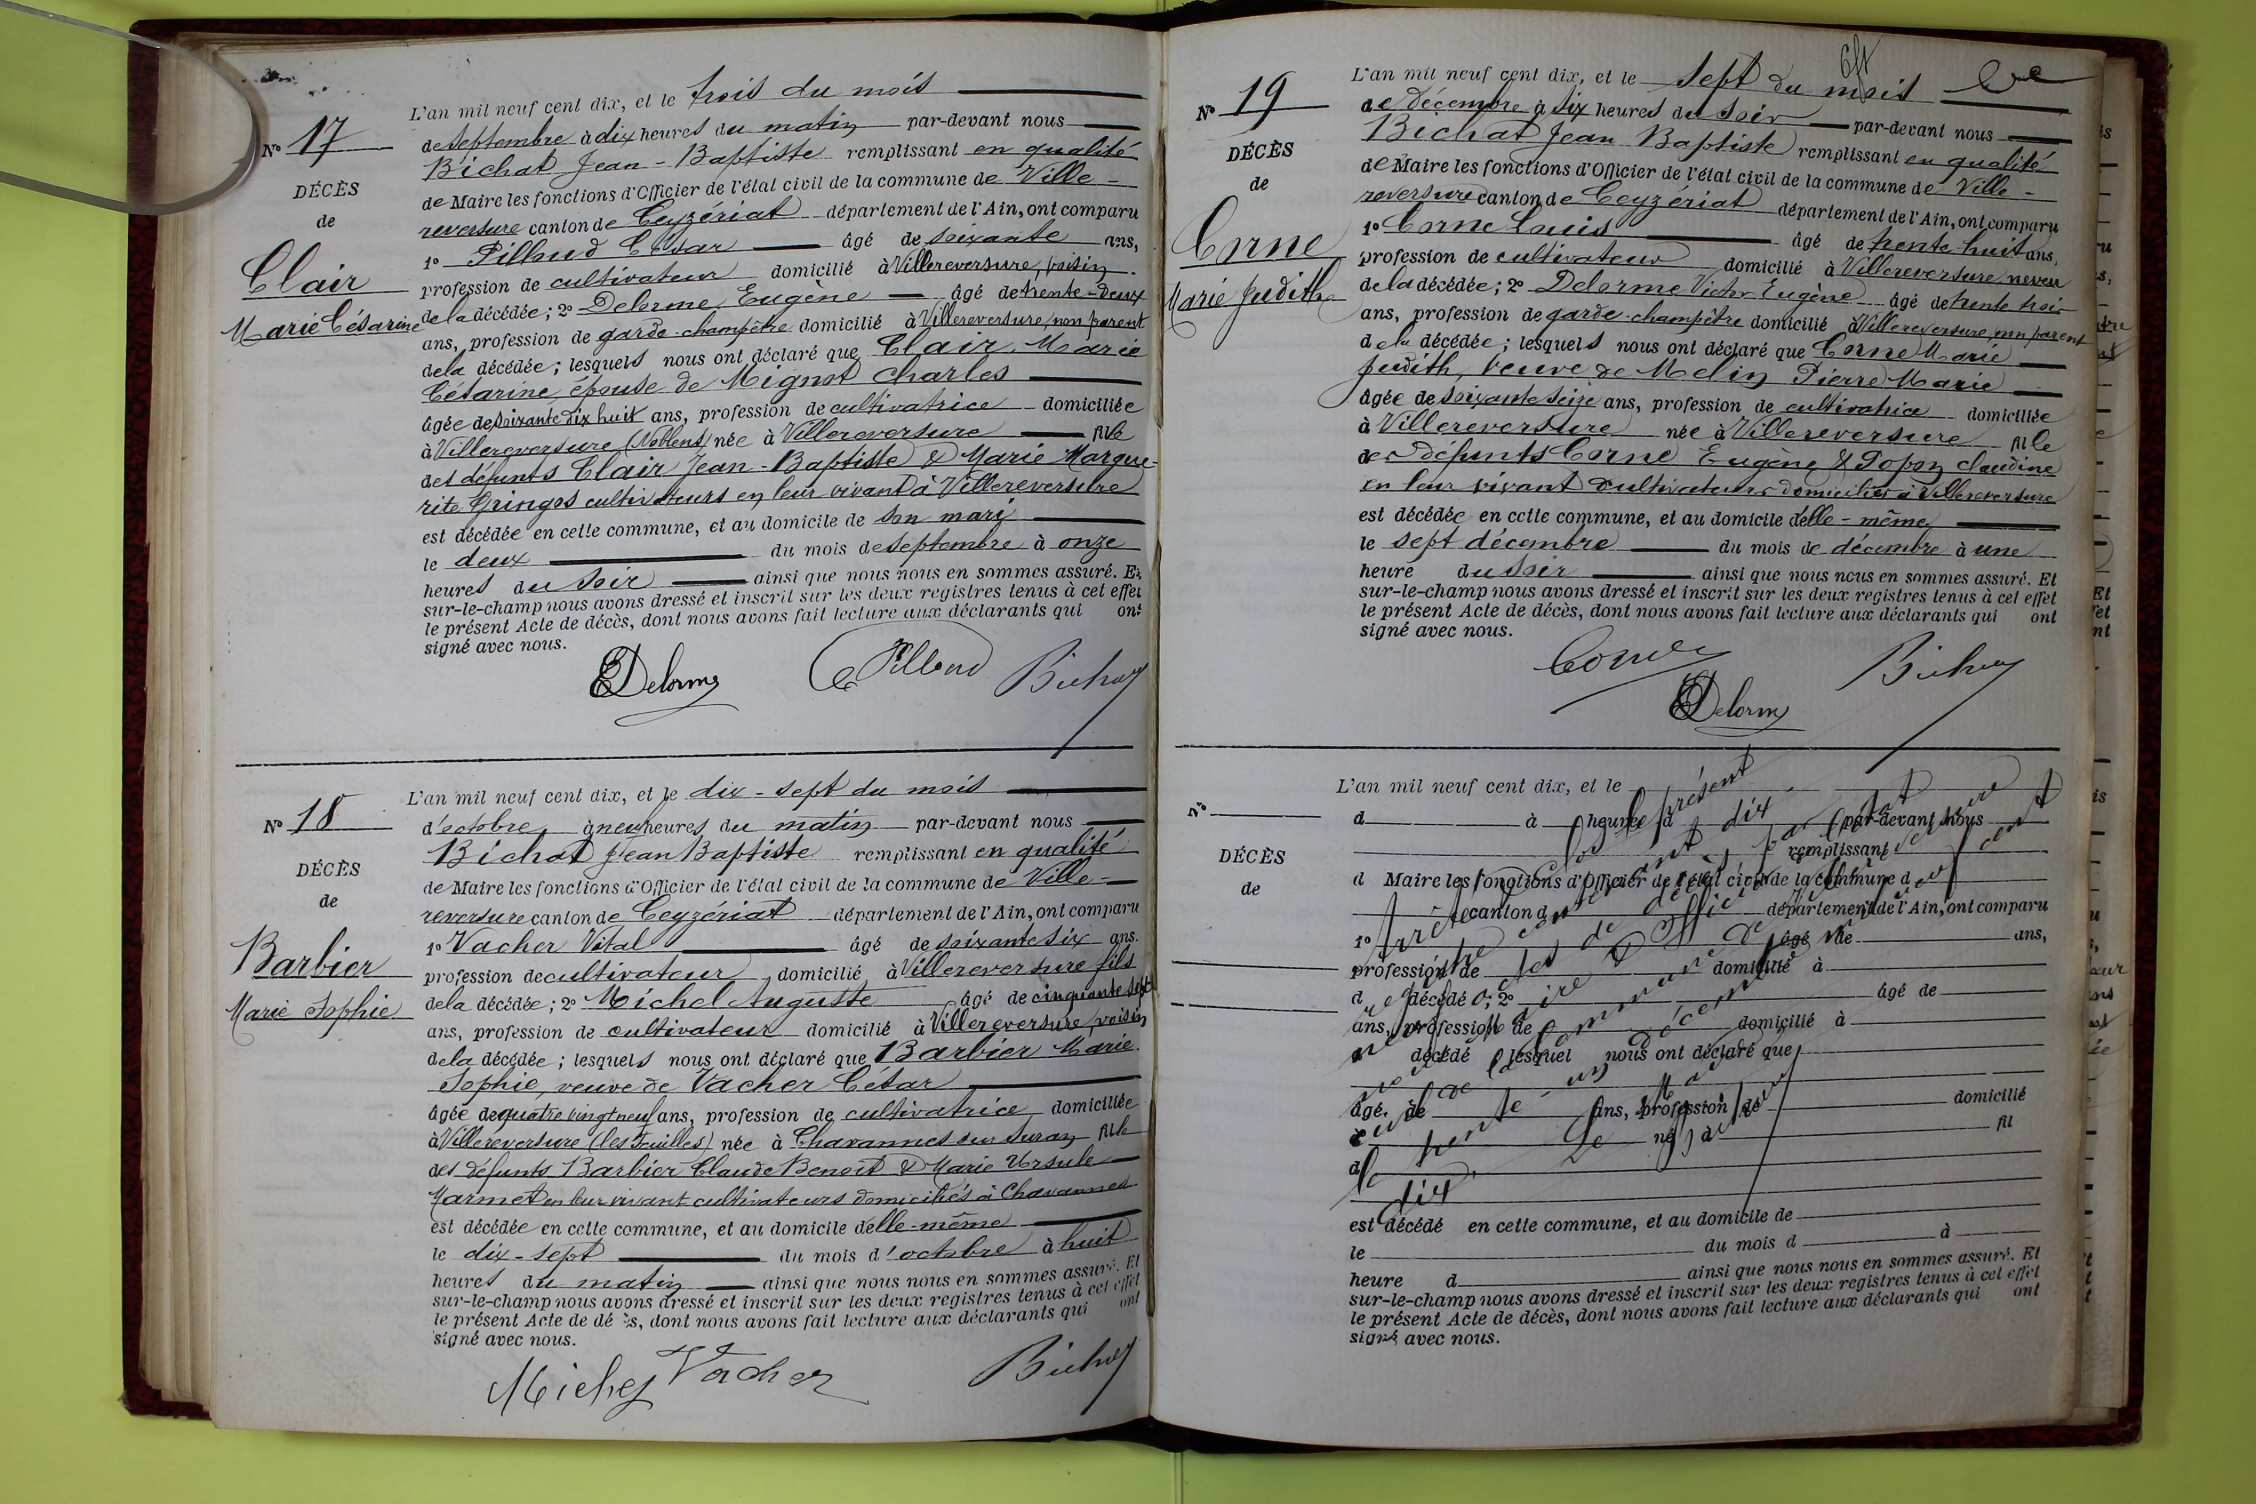 No 17
DÉCÈS
de
Clair
Marie Césarine
L'an mil neuf cent dix, et le trois du mois
de septembre à dix heures du matin par-devant nous
Bichat Jean-Baptiste remplissant en qualité
de Maire les fonctions d'Officier de l'état civil de la commune de Ville-
reversure canton de Ceyzériat département de l'Ain, ont comparu
1o Pilloud César âgé de soixante ans,
profession de cultivateur domicilié à Villereversure, voisin
de la décédée; 2o Delorme Eugène âgé de trente-deux
ans, profession de garde-champêtre domicilié à Villereversure, non parent
de la décédée; lesquels nous ont déclaré que Clair Marie
Césarine, épouse de Mignot Charles
âgée de soixante dix huit ans, profession de cultivatrice domiciliée
à Villereversure (Noblens) née à Villereversure fille
des défunts Clair Jean-Baptiste & Marie Margue-
rite Gringos cultivateurs en leur vivant à Villereversure
est décédée en cette commune, et au domicile de son mari
le deux du mois de septembre à onze
heures du soir ainsi que nous nous en sommes assuré. Et
sur-le-champ nous avons dressé et inscrit sur les deux registres tenus à cet effet
le présent Acte de décès, dont nous avons fait lecture aux déclarants qui ont
signé avec nous.
EDelorme C Pilloud Bichat
No 18
DÉCÈS
de
Barbier
Marie Sophie
L'an mil neuf cent dix, et le dix-sept du mois
d'octobre à neuf heures du matin par-devant nous
Bichat Jean Baptiste remplissant en qualité
de Maire les fonctions d'Officier de l'état civil de la commune de Ville-
reversure canton de Ceyzériat département de l'Ain, ont comparu
1o Vacher Vital âgé de soixante six ans.
profession de cultivateur domicilié à Villereversure fils
de la décédée; 2o Michel Auguste âgé de cinquante sept
ans, profession de cultivateur domicilié à Villereversure, voisin
de la décédée; lesquels nous ont déclaré que Barbier Marie
Sophie, veuve de Vacher César
âgée de quatre vingt neuf ans, profession de cultivatrice domiciliée
à Villereversure (les Feuilles) née à Chavannes sur Suran fille
des défunts Barbier Claude Benoît & Marie Ursule
Marmet en leur vivant cultivateurs domiciliés à Chavannes
est décédée en cette commune, et au domicile d'elle-même
le dix-sept du mois d'octobre à huit
heures du matin ainsi que nous nous en sommes assuré. Et
sur-le-champ nous avons dressé et inscrit sur les deux registres tenus à cet effet
le présent Acte de décès, dont nous avons fait lecture aux déclarants qui ont
signé avec nous.
Michel Vacher Bichat
No 19
DÉCÈS
de
Corne
Marie Judith
L'an mil neuf cent dix, et le sept du mois
de décembre à six heures du soir par-devant nous
Bichat Jean Baptiste remplissant en qualité
de Maire les fonctions d'Officier de l'état civil de la commune de Ville-
reversure canton de Ceyzériat département de l'Ain, ont comparu
1o Corne Louis âgé de trente-huit ans,
profession de cultivateur domicilié à Villereversure neveu
de la décédée; 2o Delorme Victor Eugène âgé de trente trois
ans, profession de garde-champêtre domicilié à Villereversure, non parent
de la décédée; lesquels nous ont déclaré que Corne Marie
Judith, Veuve de Melin Pierre Marie
âgée de soixante seize ans, profession de cultivatrice domiciliée
à Villereversure née à Villereversure fille
des défunts Corne Eugène & Popon Claudine
en leur vivant cultivateurs domiciliés à Villereversure
est décédée en cette commune, et au domicile d'elle-même
le sept décembre du mois de décembre à une
heure du soir ainsi que nous nous en sommes assuré. Et
sur-le-champ nous avons dressé et inscrit sur les deux registres tenus à cet effet
le présent Acte de décès, dont nous avons fait lecture aux déclarants qui ont
signé avec nous.
Corne Bichat
EDelorme
No
DÉCÈS
de
L'an mil neuf cent dix, et le
d à heure d par-devant nous
remplissant
d Maire les fonctions d'Officier de l'état civil de la commune d
canton d département de l'Ain, ont comparu
1o âgé de ans,
profession de domicilié à
d décédé ; 2o âgé de
ans, profession de domicilié à
décédé lesquel nous ont déclaré que
âgé de ans, profession de domicilié
à né à fil
d
est décédé en cette commune, et au domicile de
le du mois d à
heure d ainsi que nous nous en sommes assuré. Et
sur-le-champ nous avons dressé et inscrit sur les deux registres tenus à cet effet
le présent Acte de décès, dont nous avons fait lecture aux déclarants qui ont
signé avec nous.
Arrêté & clos le présent
registre contenant dix
neuf actes de décès, par
Maire & Officier de l'état
civil de la commune de Villereversure
le trente un Décembre mil neuf cent
dix.
Le Maire